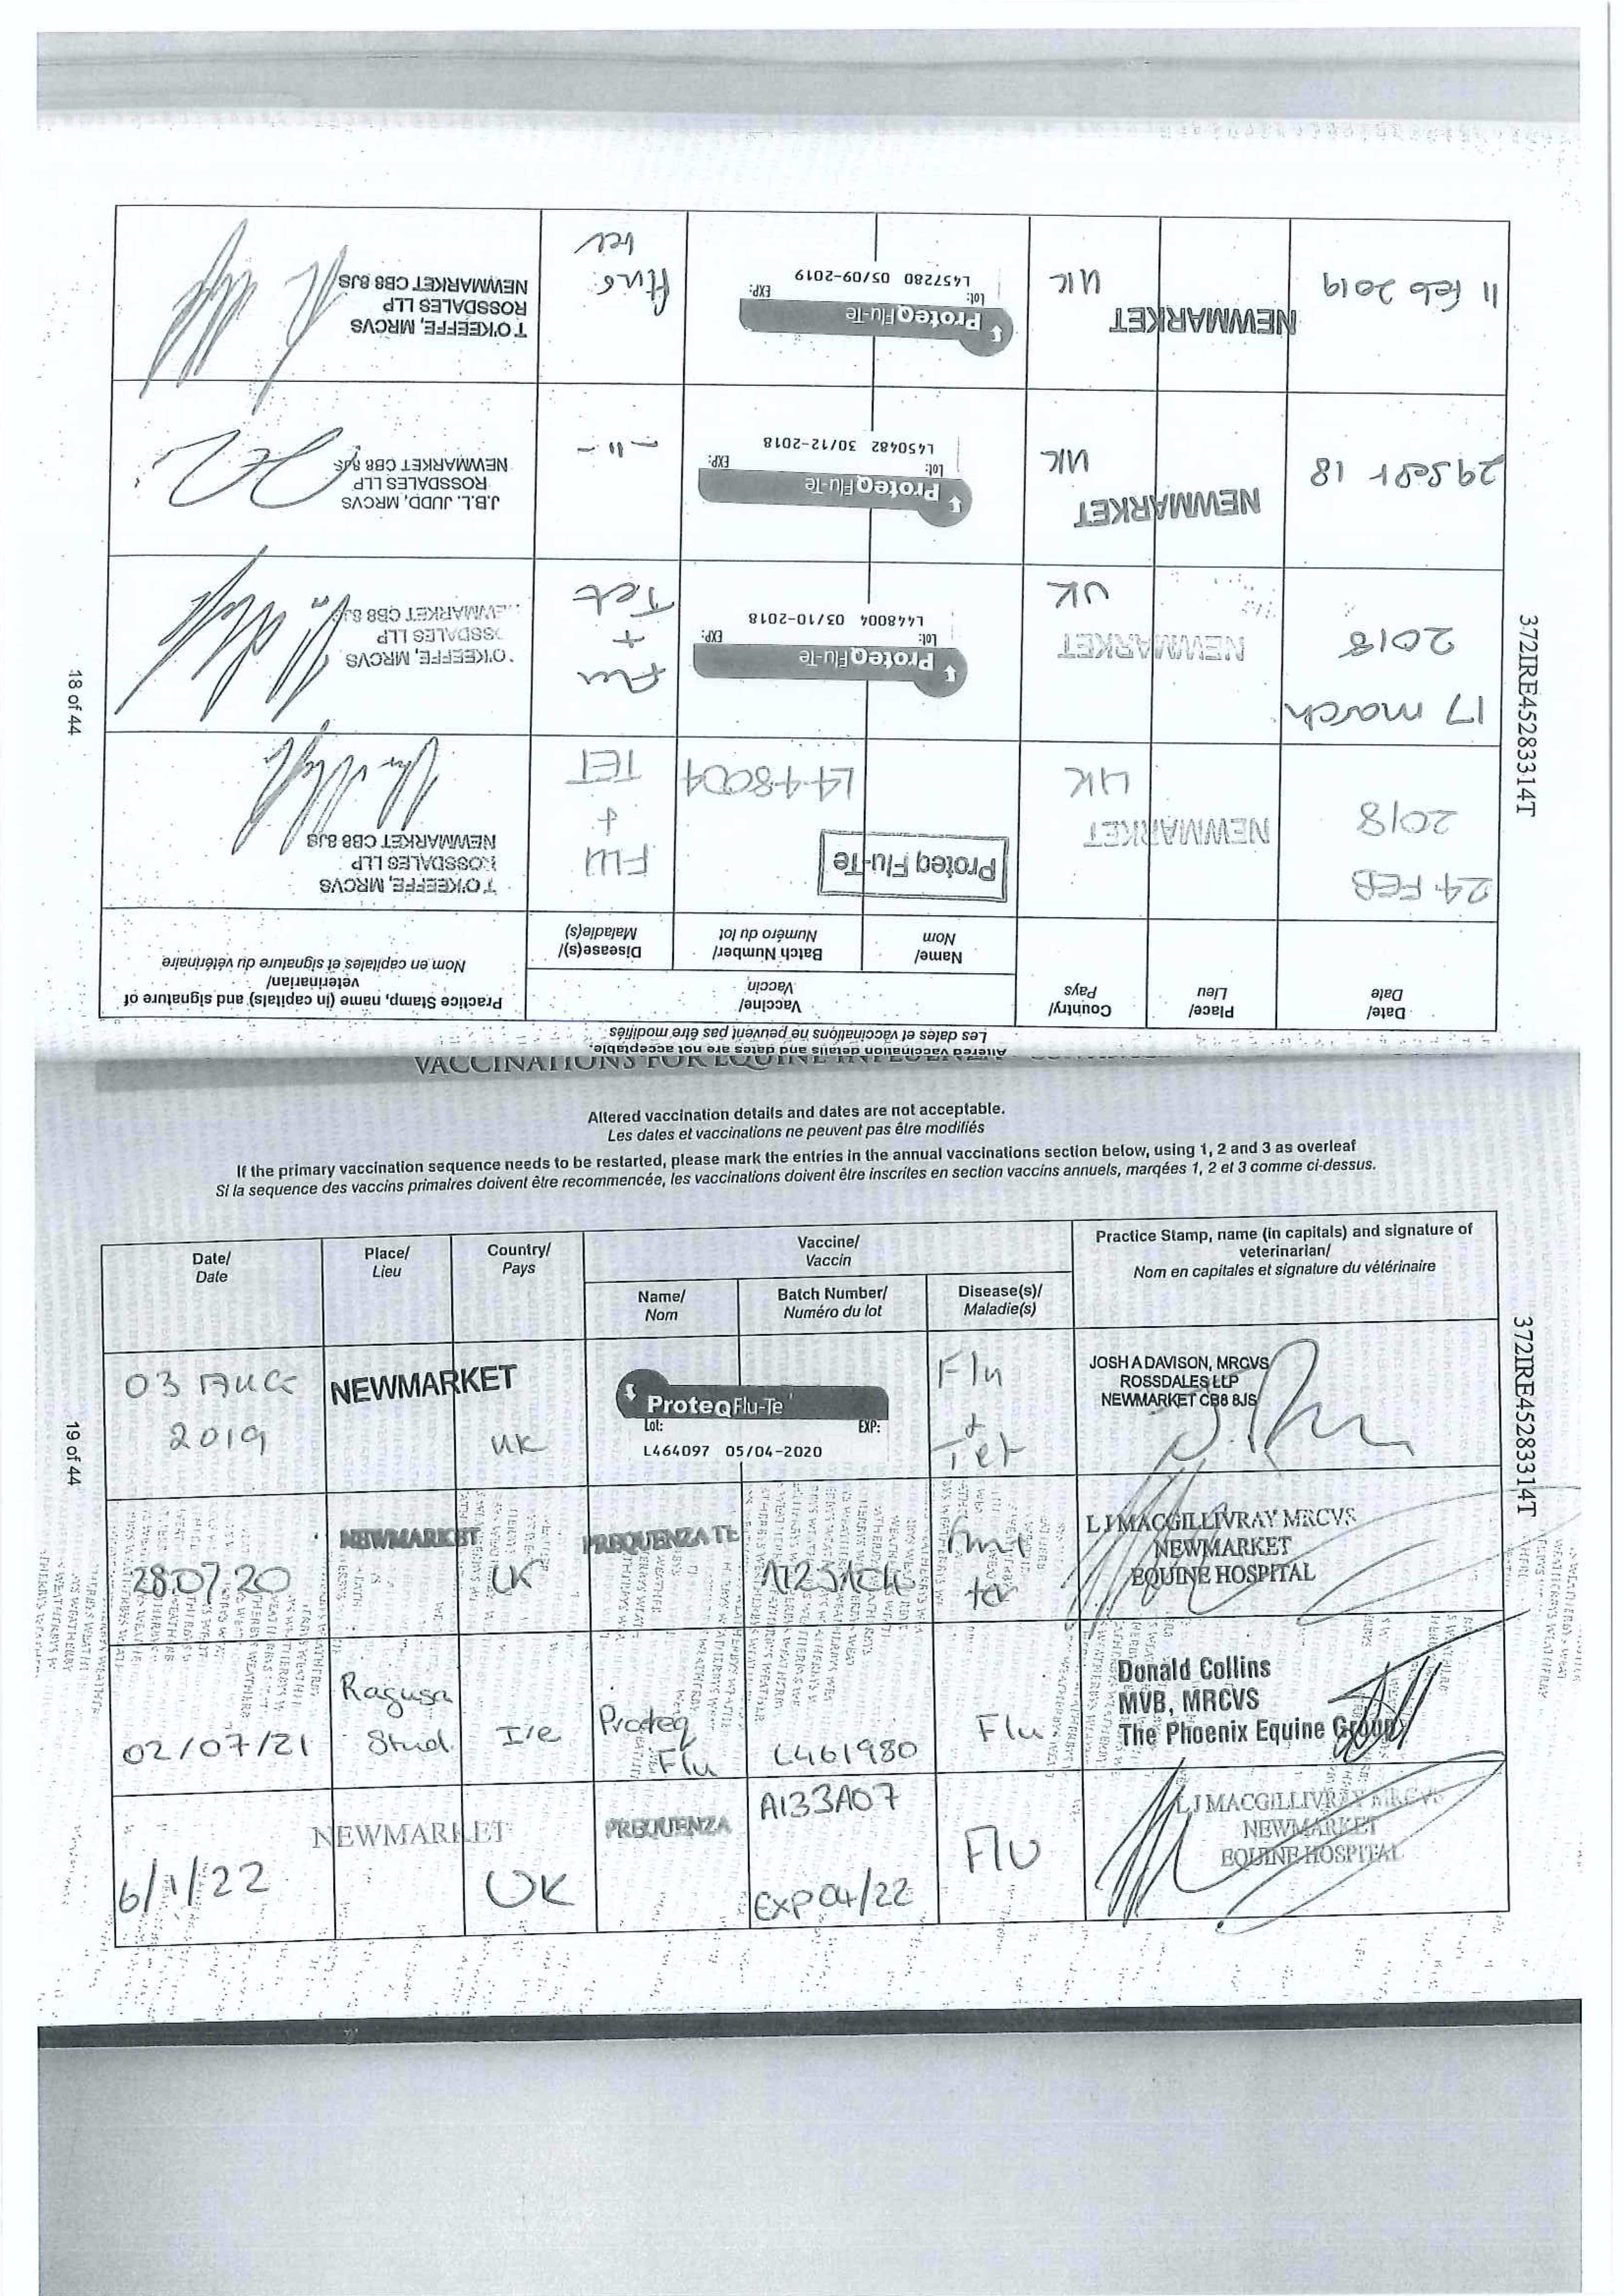 18 of 44
372IRE45283314T
Altered vaccination details and dates are not acceptable.
Les dates et vaccinations ne peuvent pas être modifiés
Date/ Place/ Country/ Vaccine/ Practice Stamp, name (in capitals) and signature of
Date Lieu Pays Vaccin veterinarian/
Name/ Batch Number/ Disease(s)/ Nom en capitales et signature du vétérinaire
Nom Numéro du lot Maladie(s)
24 FEB
2018
NEWMARKET
UK
Proteq Flu-Te
L448004
FLU
+
TET
T O'KEEFFE, MRCVS
ROSSDALES LLP
NEWMARKET CB8 8JS
17 march
2018
NEWMARKET
UK
ProteqFlu-Te
Lot: EXP:
L448004 03/10-2018
Flu
+
Tet
O'KEEFFE, MRCVS
OSSDALES LLP
EWMARKET CB8 8JS
29 Sept 18
NEWMARKET
UK
ProteqFlu-Te
Lot: EXP:
L450482 30/12-2018
-"-
J.B.L. JUDD, MRCVS
ROSSDALES LLP
NEWMARKET CB8 8JS
11 feb 2019
NEWMARKET
UK
ProteqFlu-Te
Lot: EXP:
L457280 05/09-2019
T O'KEEFFE, MRCVS
ROSSDALES LLP
NEWMARKET CB8 8JS
19 of 44
372IRE45283314T
Altered vaccination details and dates are not acceptable.
Les dates et vaccinations ne peuvent pas être modifiés
If the primary vaccination sequence needs to be restarted, please mark the entries in the annual vaccinations section below, using 1, 2 and 3 as overleaf
Si la sequence des vaccins primaires doivent être recommencée, les vaccinations doivent être inscrites en section vaccins annuels, marqées 1, 2 et 3 comme ci-dessus.
Date/ Place/ Country/ Vaccine/ Practice Stamp, name (in capitals) and signature of
Date Lieu Pays Vaccin veterinarian/
Name/ Batch Number/ Disease(s)/ Nom en capitales et signature du vétérinaire
Nom Numéro du lot Maladie(s)
03 AUG
2019
NEWMARKET
UK
ProteqFlu-Te
Lot: EXP:
L464097 05/04-2020
Flu
+
Tet
JOSH A DAVISON, MRCVS
ROSSDALES LLP
NEWMARKET CB8 8JS
28.07.20
NEWMARKET
UK
PREQUENZA TE
tet
L J MACGILLIVRAY MRCVS
NEWMARKET
EQUINE HOSPITAL
02/07/21
Ragusa
Stud
Ire
Proteq
Flu
L461980
Flu
Donald Collins
MVB, MRCVS
The Phoenix Equine Group
6/1/22
NEWMARKET
UK
PREQUENZA
A133A07
EXP 04/22
Flu
L J MACGILLIVRAY MRCVS
NEWMARKET
EQUINE HOSPITAL